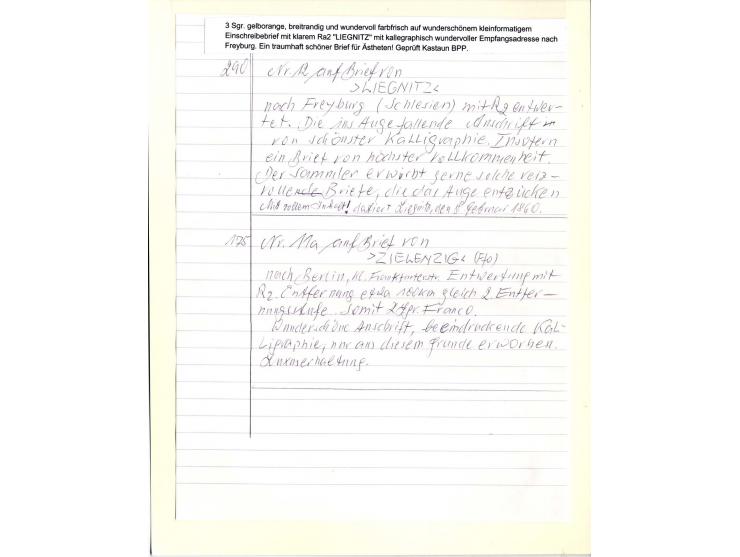 3 Sgr. gelborange, breitrandig und wundervoll farbfrisch auf wunderschönem kleinformatigem
Einschreibebrief mit klarem Ra2 "LIEGNITZ" mit kallegraphisch wundervoller Empfangsadresse nach
Freyburg. Ein traumhaft schöner Brief für Ästheten! Geprüft Kastaun BPP.
290 Nr. 12 auf Brief von
>LIEGNITZ<
nach Freyburg (Schlesien) mit R2 entwer-
tet. Die ins Auge fallende Anschrift
von schönster Kalligraphie. Insofern
ein Brief von höchster Vollkommenheit.
Der Sammler erwirbt gerne solche reiz-
vollen Briefe, die das Auge entzücken
Mit vollem Inhalt! datiert Liegnitz, den 8 Februar 1860.
175 Nr. 11a auf Brief von
>ZIELENZIG< (Ffo)
nach Berlin, kl. Frankfurterstr. Entwertung mit
R2. Entfernung etwa 100km gleich 2. Entfer-
nungsstufe. Somit 2 Sgr. Franco.
Wunderschöne Anschrift, beeindruckende Kal-
ligraphie, nur aus diesem Grunde erworben.
Luxuserhaltung.